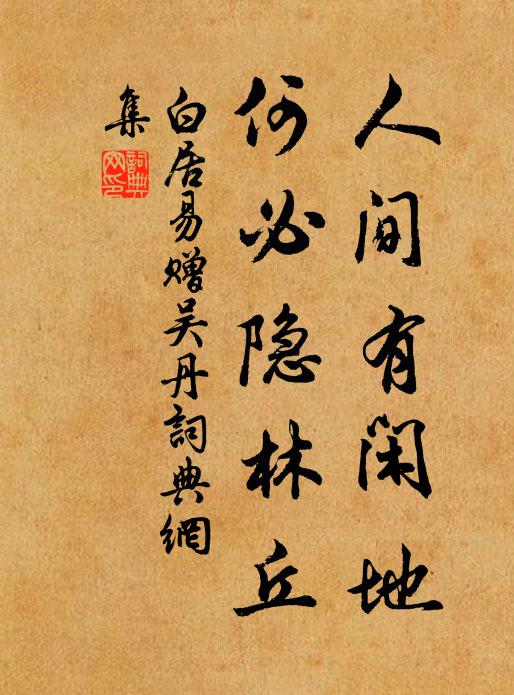 人间有闲地
何必隐林丘
白居易赠吴丹詞典網
集
詞典
网印